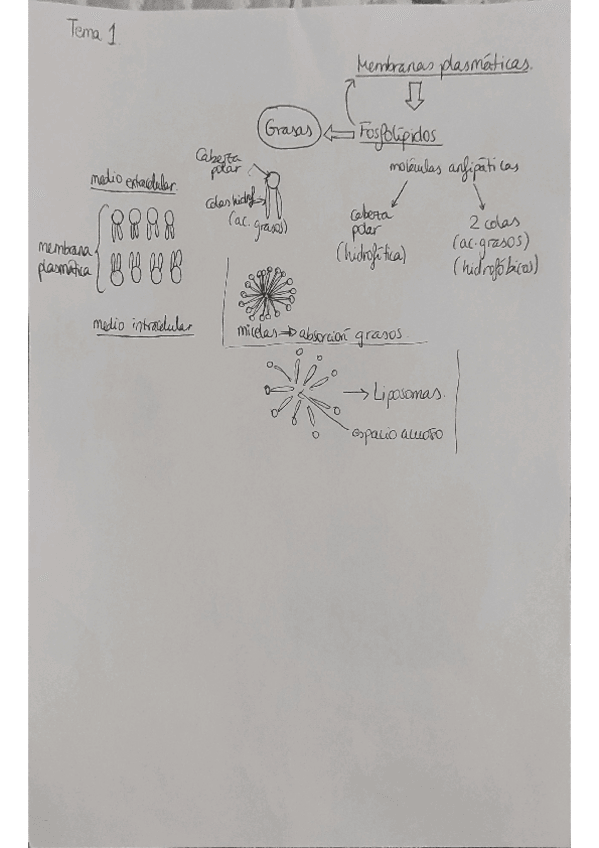 Tema 1
Membranas plasmáticas.
Grasas
Fosfolípidos
moléculas anfipáticas
cabeza
polar
(hidrofílica)
2 colas
(ac. grasos)
(hidrofóbicas)
Cabeza
polar
colas hidrof.
(ac. grasos)
medio extracelular
membrana
plasmática
medio intracelular
micelas → absorción grasas.
→ Liposomas.
espacio acuoso